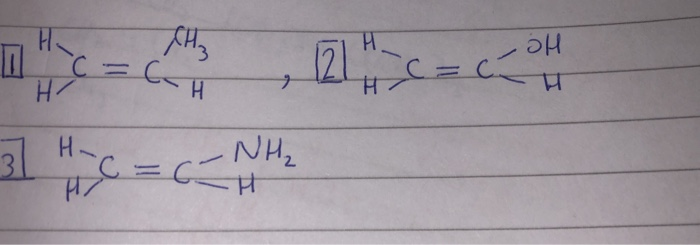 1 H H C = C CH3 H , 2 H H C = C OH H
3 H H C = C NH2 H